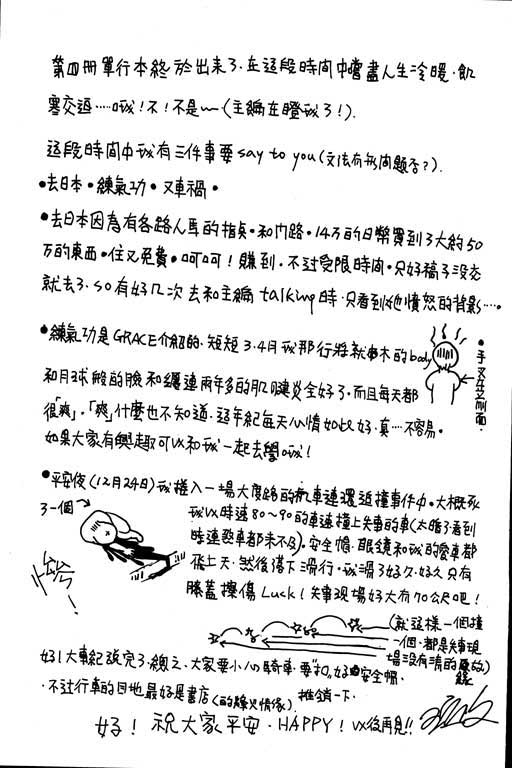 第四冊單行本終於出來了．在這段時間中嚐盡人生冷暖．飢
寒交迫……哦！不！不是～（主編在瞪我了！）．
這段時間中我有三件事要say to you（文法有無問題否？）．
●去日本．練氣功．又車禍．
●去日本因為有各路人馬的指點．和門路．14万的日幣買到了大約50
万的東西．住又免費．呵呵！賺到．不过受限時間．只好稿子沒交
就去了．so有好几次去和主編talking時．只看到她憤怒的背影…．
●練氣功是GRACE介紹的．短短3.4月我那行將就木的body
和月球般的臉和纏連兩年多的肌腱炎全好了．而且每天都
很「爽」．「爽」什麼也不知道．這年紀每天心情如此好．真…不容易．
如果大家有興趣可以和我一起去學哦！
●手叉在前面．
●平安夜（12月24日）我捲入一場大度路的汽車連環追撞事件中．大概死
了一個
我以時速80～90的車速撞上失事的車（太晚了看到
時連煞車都來不及）．安全帽．眼鏡和我的愛車都
飛上天．然後落下滑行．我滑了好久．好久只有
膝蓋擦傷Luck！失事現場好大有70公尺吧！
（就這樣一個撞
一個．都是失事現
場沒有清的原故）
緣
好！大事紀說完了．總之．大家要小心騎車．要"扣"好安全帽．
．不过行車的目地最好是書店（的緣火情缘）推銷一下．
好！祝大家平安．HAPPY！以後再見!!